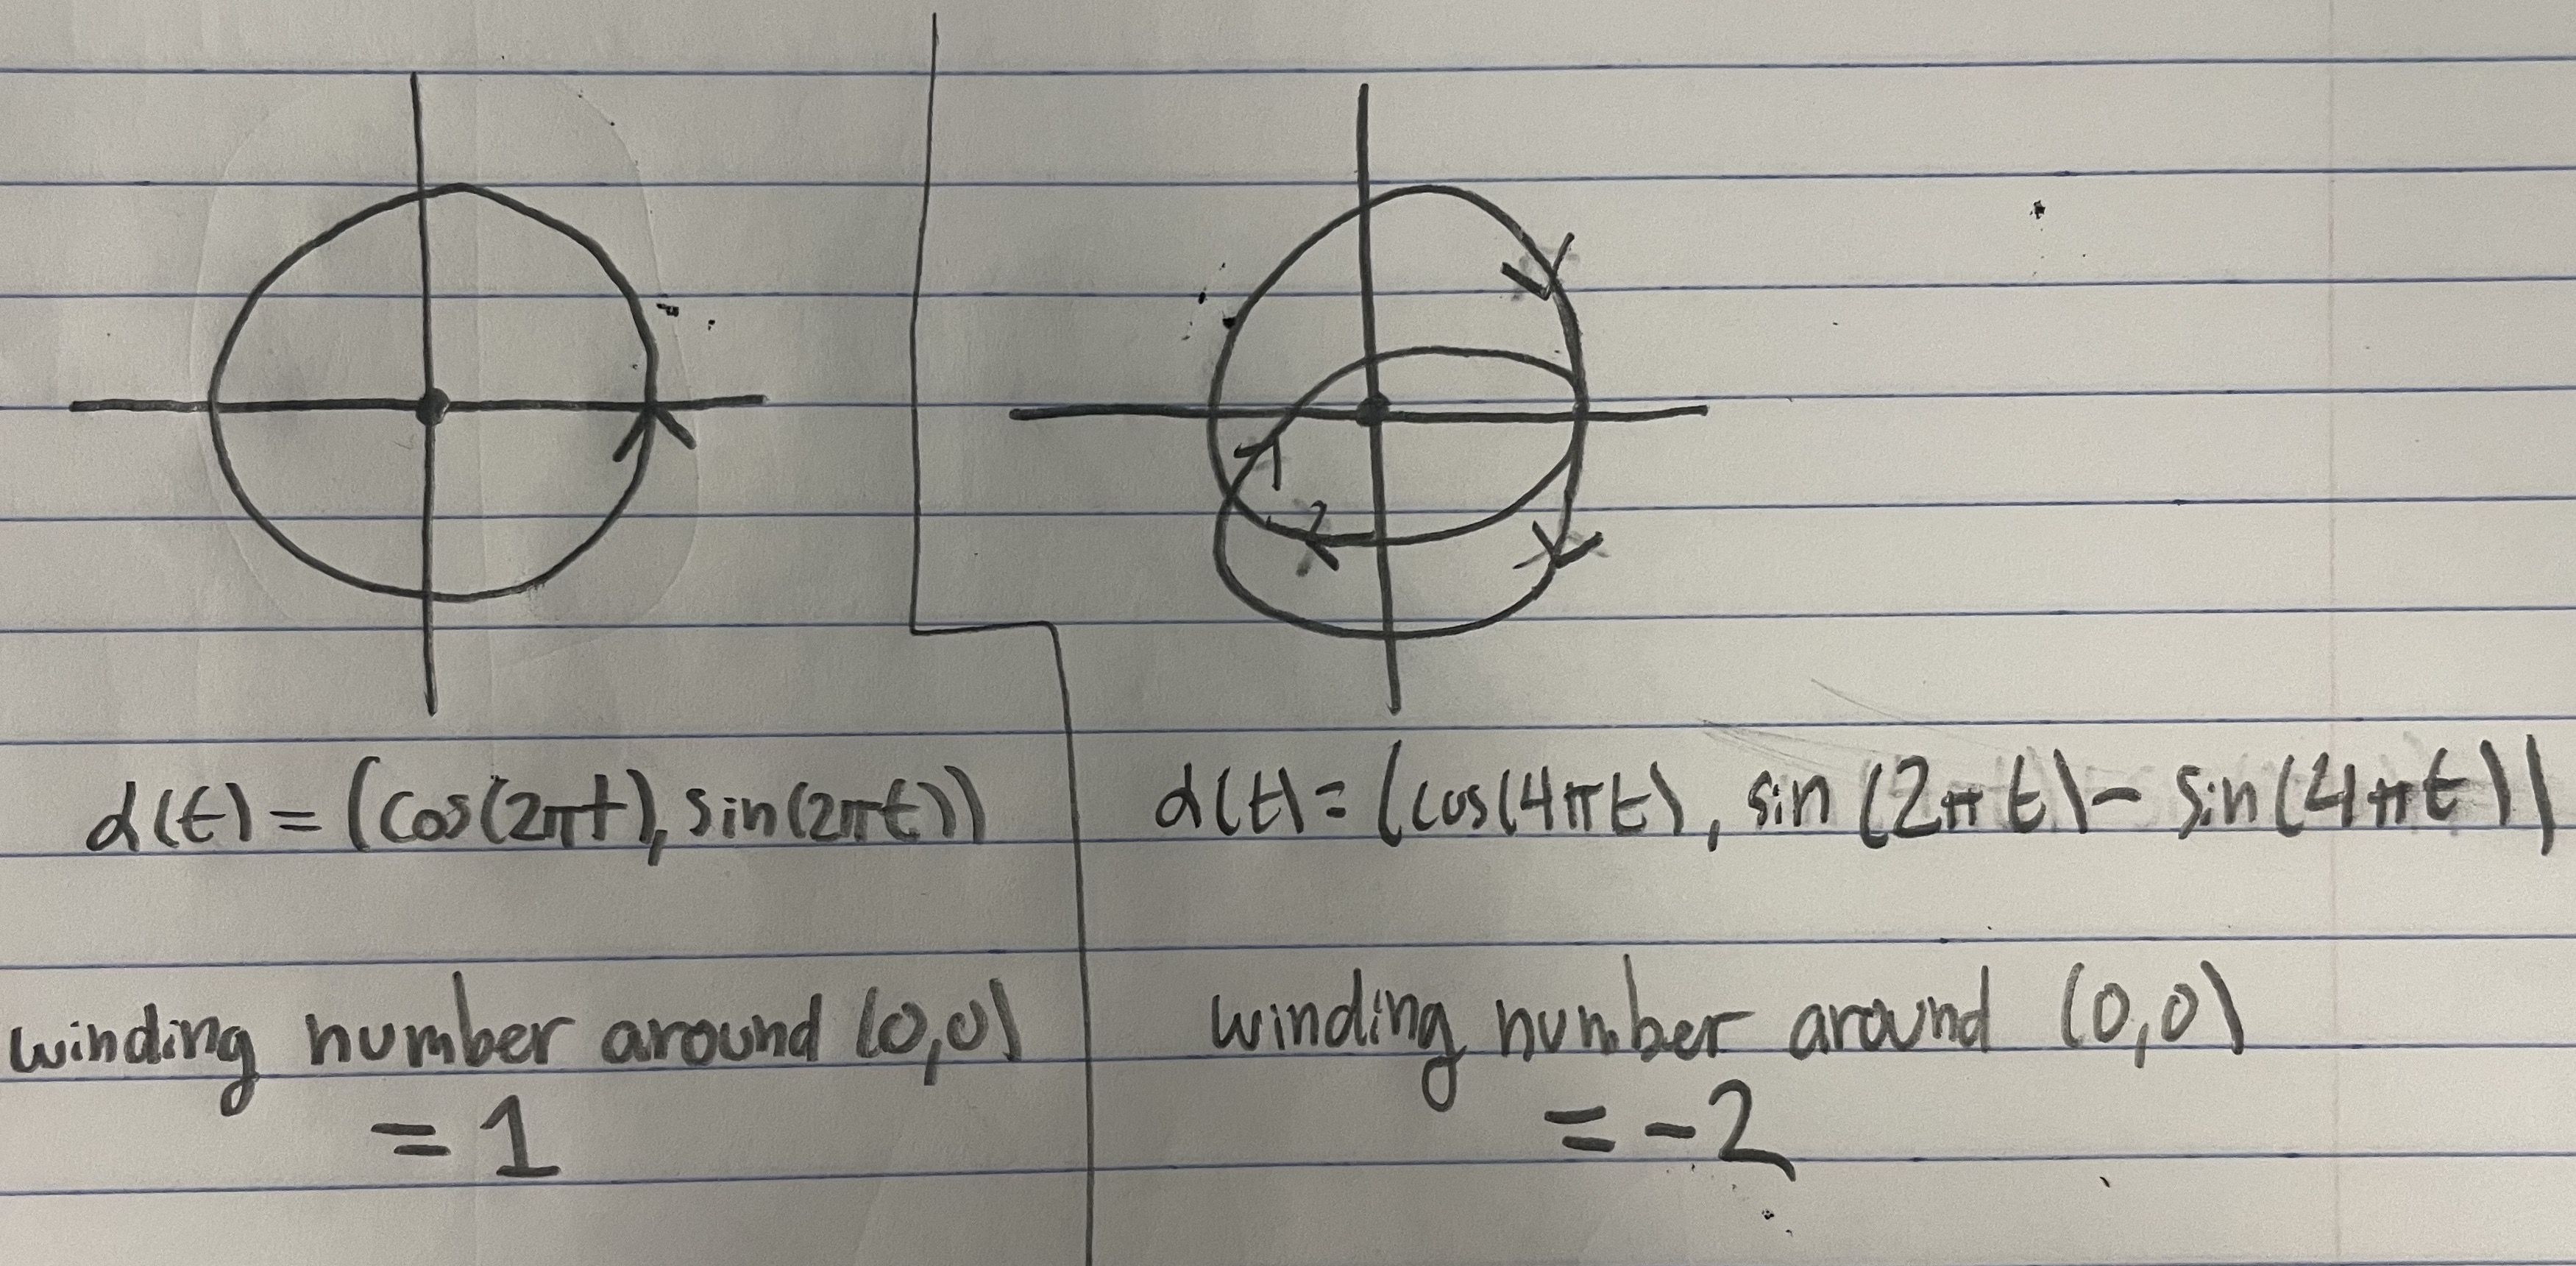 α(t) = (cos(2πt), sin(2πt))
winding number around (0,0)
= 1
α(t) = (cos(4πt), sin(2πt) - sin(4πt))
winding number around (0,0)
= -2